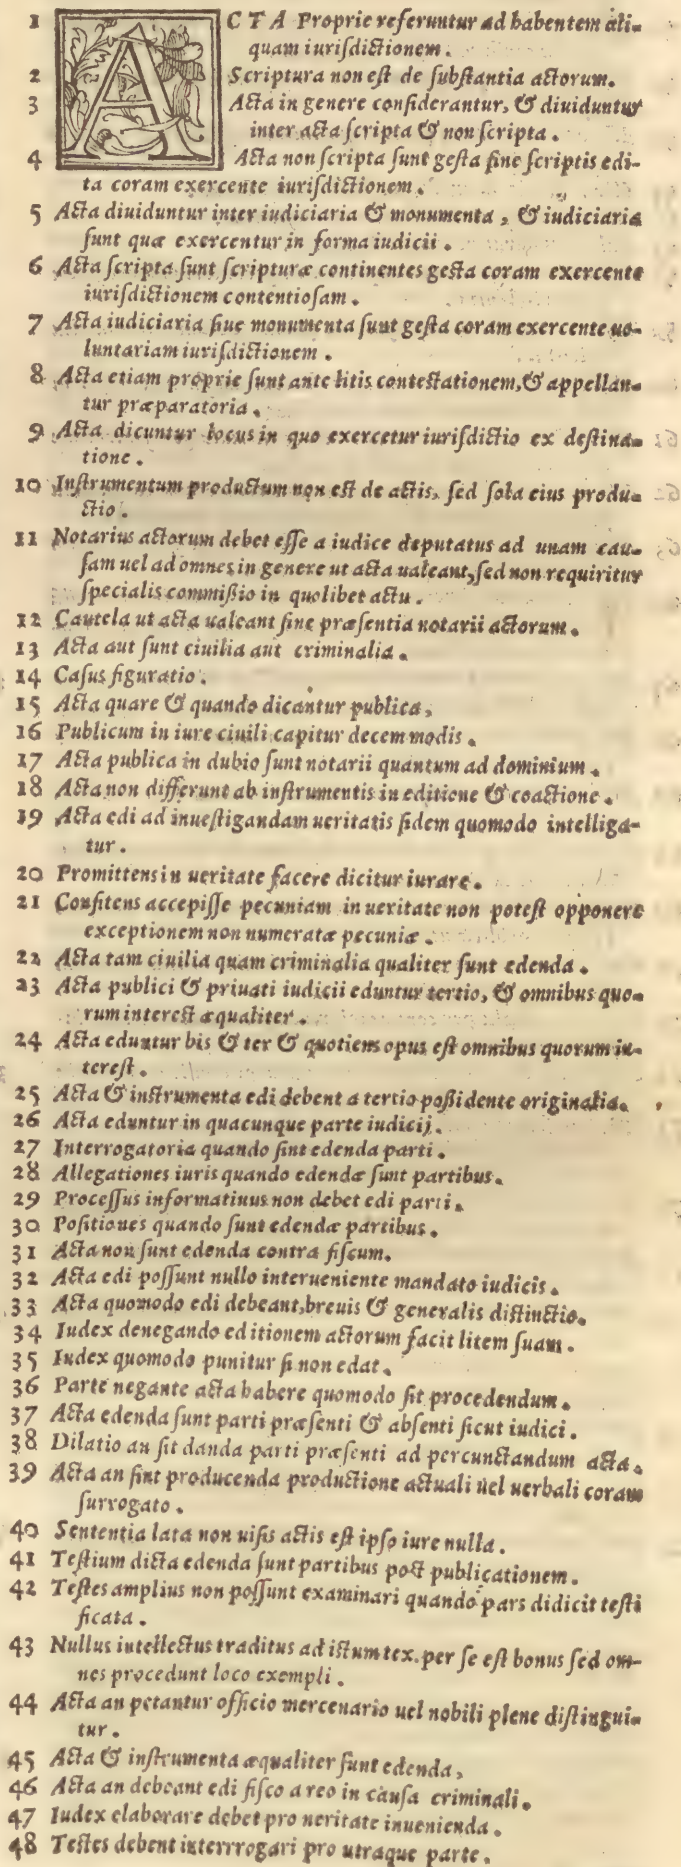 1 ACTA Proprie referuntur ad habentem ali-
quam iurisdictionem.
2 Scriptura non est de substantia actorum.
3 Acta in genere considerantur, & diuiduntur
inter acta scripta & non scripta.
4 Acta non scripta sunt gesta sine scriptis edi-
ta coram exercente iurisdictionem.
5 Acta diuiduntur inter iudiciaria & monumenta, & iudiciaria
sunt quæ exercentur in forma iudicii.
6 Acta scripta sunt scripturæ continentes gesta coram exercente
iurisdictionem contentiosam.
7 Acta iudiciaria siue monumenta sunt gesta coram exercente uo-
luntariam iurisdictionem.
8 Acta etiam proprie sunt ante litis contestationem, & appellan-
tur præparatoria.
9 Acta dicuntur locus in quo exercetur iurisdictio ex destina-
tione.
10 Instrumentum productum non est de actis, sed sola eius produ-
ctio.
11 Notarius actorum debet esse a iudice deputatus ad unam cau-
sam uel ad omnes in genere ut acta ualeant, sed non requiritur
specialis commißio in quolibet actu.
12 Cautela ut acta ualeant sine præsentia notarii actorum.
13 Acta aut sunt ciuilia aut criminalia.
14 Casus figuratio.
15 Acta quare & quando dicantur publica,
16 Publicum in iure ciuili capitur decem modis.
17 Acta publica in dubio sunt notarii quantum ad dominium.
18 Acta non differunt ab instrumentis in editione & coactione.
19 Acta edi ad inuestigandam ueritatis fidem quomodo intelliga-
tur.
20 Promittens in ueritate facere dicitur iurare.
21 Confitens accepisse pecuniam in ueritate non potest opponere
exceptionem non numeratæ pecuniæ.
22 Acta tam ciuilia quam criminalia qualiter sunt edenda.
23 Acta publici & priuati iudicii eduntur tertio, & omnibus quo-
rum interest æqualiter.
24 Acta eduntur bis & ter & quotiens opus est omnibus quorum in-
terest.
25 Acta & instrumenta edi debent a tertio poßidente originalia.
26 Acta eduntur in quacunque parte iudicij.
27 Interrogatoria quando sint edenda parti.
28 Allegationes iuris quando edendæ sunt partibus.
29 Processus informatiuus non debet edi parti.
30 Positiones quando sunt edendæ partibus.
31 Acta non sunt edenda contra fiscum.
32 Acta edi possunt nullo interueniente mandato iudicis.
33 Acta quomodo edi debeant, breuis & generalis distinctio.
34 Iudex denegando editionem actorum facit litem suam.
35 Iudex quomodo punitur si non edat.
36 Parte negante acta habere quomodo sit procedendum.
37 Acta edenda sunt parti præsenti & absenti sicut iudici.
38 Dilatio an sit danda parti præsenti ad percunctandum acta.
39 Acta an sint producenda productione actuali uel uerbali coram
surrogato.
40 Sententia lata non uisis actis est ipso iure nulla.
41 Testium dicta edenda sunt partibus post publicationem.
42 Testes amplius non possunt examinari quando pars didicit testi
ficata.
43 Nullus intellectus traditus ad istum tex. per se est bonus sed om-
nes procedunt loco exempli.
44 Acta an petantur officio mercenario uel nobili plene distingui-
tur.
45 Acta & instrumenta æqualiter sunt edenda,
46 Acta an debeant edi fisco a reo in causa criminali.
47 Iudex elaborare debet pro ueritate inuenienda.
48 Testes debent interrrogari pro utraque parte.